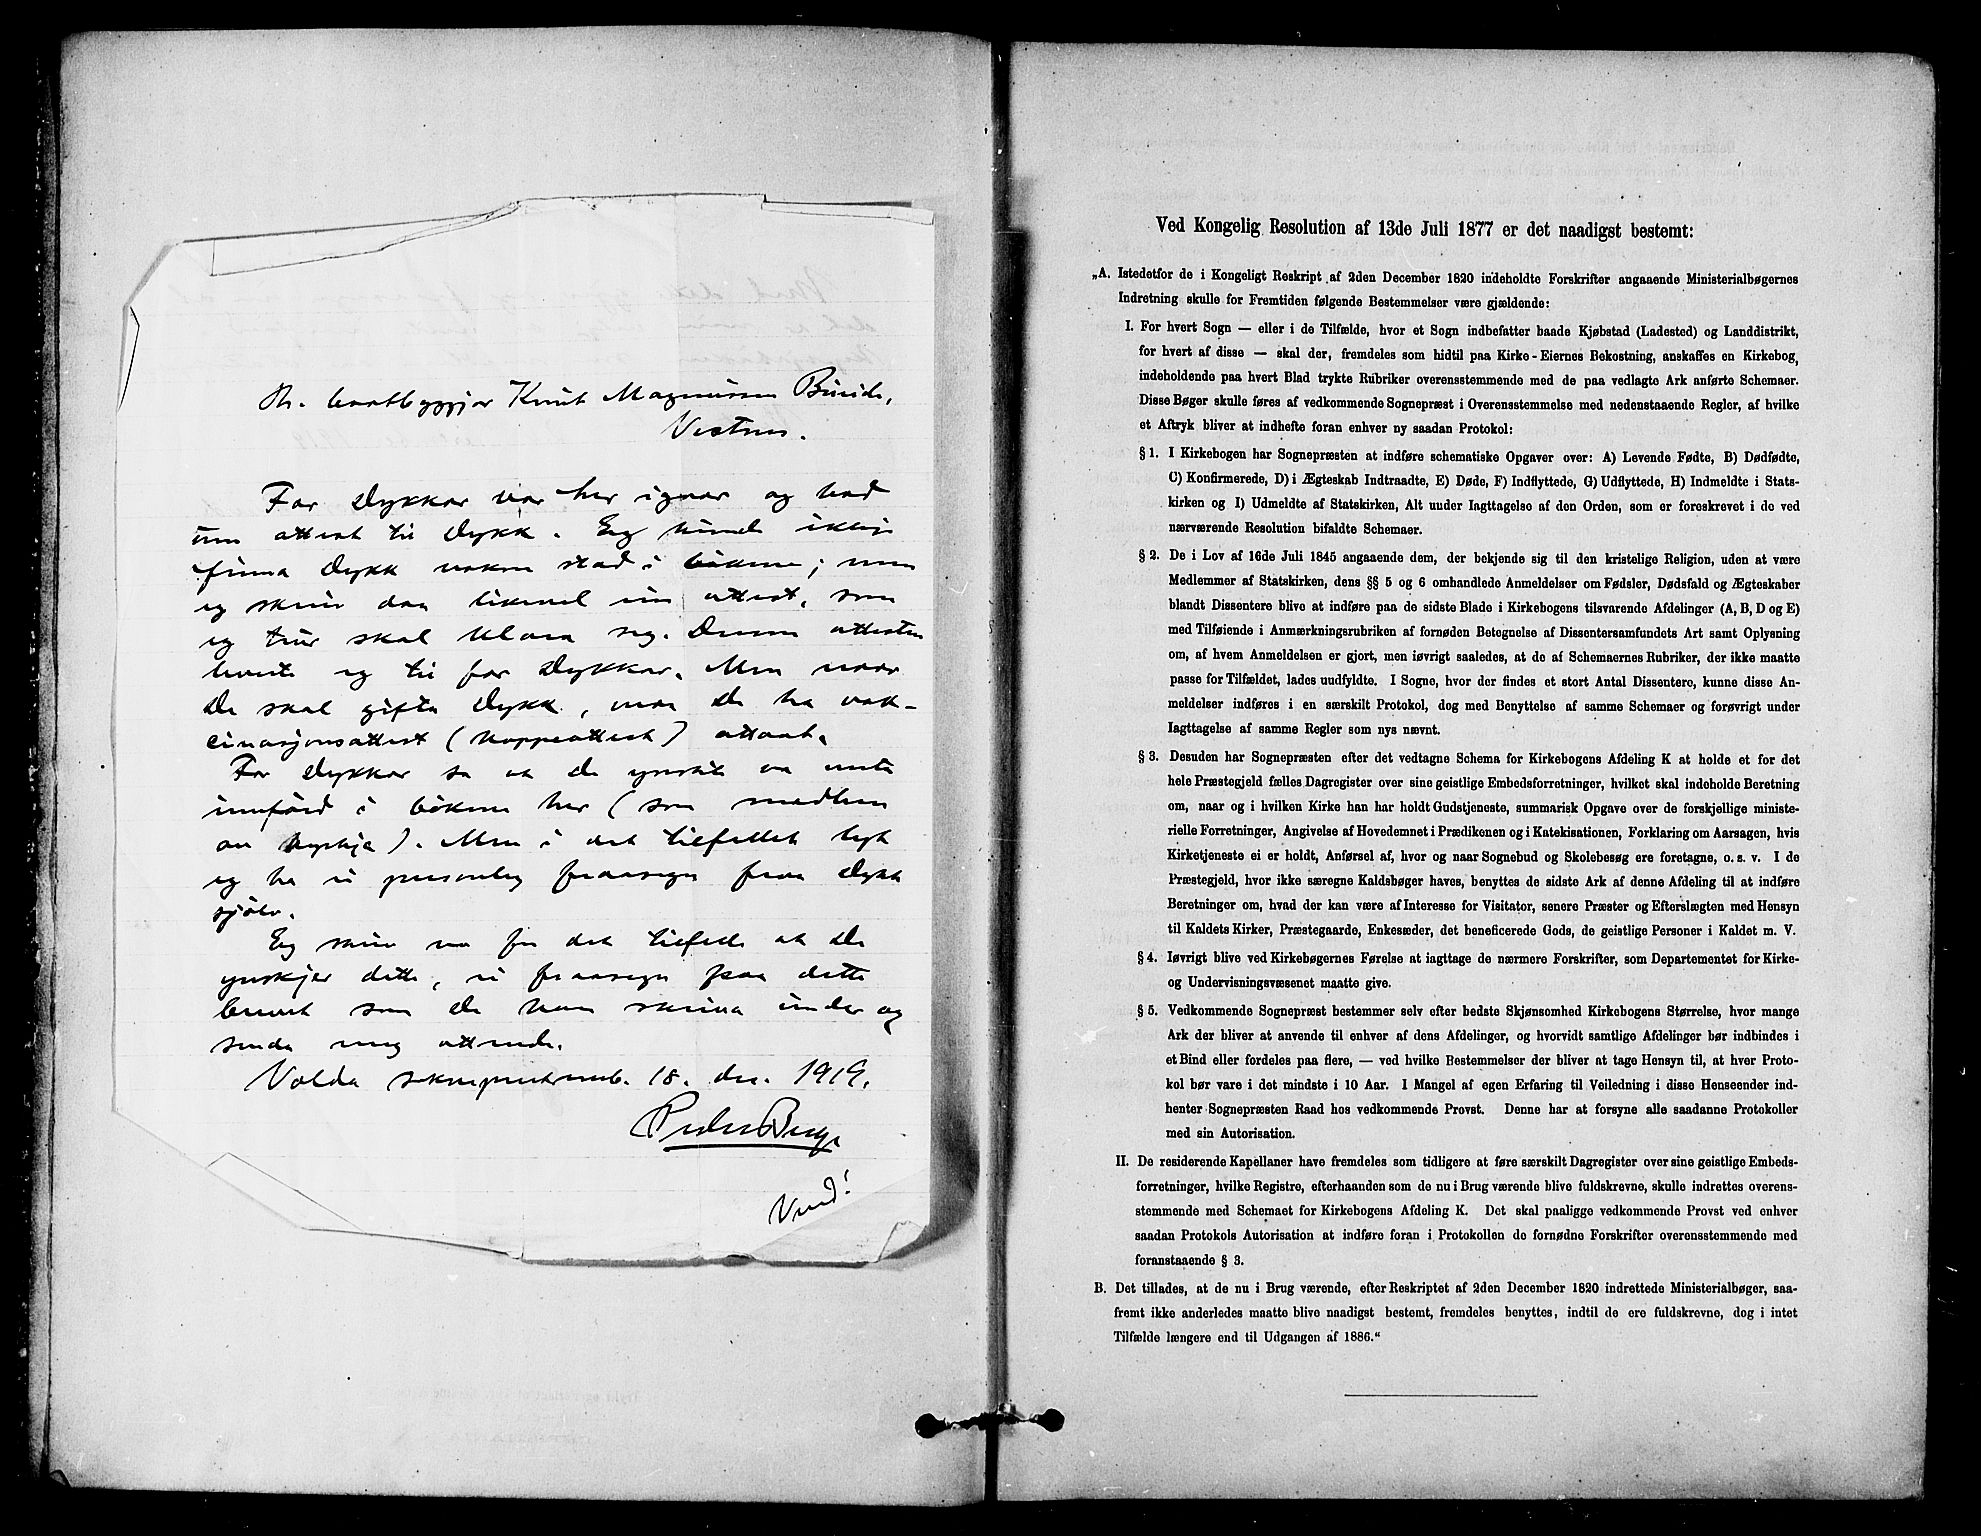 Hr. baatbyggjar Knut Magnussen Buude,
Vestnes.
Far Dykkar var her igaar og bad
um attest til Dykk. Eg kunde ikkje
finna Dykk nokon stad i bökene; men
eg skriv daa likevel ein attest, som
eg trur skal klara seg. Denne attesten
leverte eg til far Dykkar. Men naar
De skal gifta Dykk, maa De ha vak-
cinasjonsattest (koppeattest) attaat.
Far Dykkar sa at De ynskte aa verta
innförd i bökene her (som medlem
av kyrkja). Men i det tilfellet lyt
eg ha ei personleg fraasegn fraa Dykk
sjölv.
Eg skriv no for det tilfelle at De
ynskjer dette, ei fraasegn paa dette
brevet som De kan skriva under og
senda meg attende.
Volda sokneprestemb. 18. des. 1919.
Peder
Vend!
Ved Kongelig Resolution af 13de Juli 1877 er det naadigst bestemt:
„A. Istedetfor de i Kongeligt Reskript af 2den December 1820 indeholdte Forskrifter angaaende Ministerialbøgernes
Indretning skulle for Fremtiden følgende Bestemmelser være gjældende:
I. For hvert Sogn — eller i de Tilfælde, hvor et Sogn indbefatter baade Kjøbstad (Ladested) og Landdistrikt,
for hvert af disse — skal der, fremdeles som hidtil paa Kirke-Eiernes Bekostning, anskaffes en Kirkebog,
indeholdende paa hvert Blad trykte Rubriker overensstemmende med de paa vedlagte Ark anførte Schemaer.
Disse Bøger skulle føres af vedkommende Sognepræst i Overensstemmelse med nedenstaaende Regler, af hvilke
et Aftryk bliver at indhefte foran enhver ny saadan Protokol:
§ 1. I Kirkebogen har Sognepræsten at indføre schematiske Opgaver over: A) Levende Fødte, B) Dødfødte,
C) Konfirmerede, D) i Ægteskab Indtraadte, E) Døde, F) Indflyttede, G) Udflyttede, H) Indmeldte i Stats-
kirken og I) Udmeldte af Statskirken, Alt under Iagttagelse af den Orden, som er foreskrevet i de ved
nærværende Resolution bifaldte Schemaer.
§ 2. De i Lov af 16de Juli 1845 angaaende dem, der bekjende sig til den kristelige Religion, uden at være
Medlemmer af Statskirken, dens §§ 5 og 6 omhandlede Anmeldelser om Fødsler, Dødsfald og Ægteskaber
blandt Dissentere blive at indføre paa de sidste Blade i Kirkebogens tilsvarende Afdelinger (A, B, D og E)
med Tilføiende i Anmærkningsrubriken af fornøden Betegnelse af Dissentersamfundets Art samt Oplysning
om, af hvem Anmeldelsen er gjort, men iøvrigt saaledes, at de af Schemaernes Rubriker, der ikke maatte
passe for Tilfældet, lades uudfyldte. I Sogne, hvor der findes et stort Antal Dissentere, kunne disse An-
meldelser indføres i en særskilt Protokol, dog med Benyttelse af samme Schemaer og forøvrigt under
Iagttagelse af samme Regler som nys nævnt.
§ 3. Desuden har Sognepræsten efter det vedtagne Schema for Kirkebogens Afdeling K at holde et for det
hele Præstegjeld fælles Dagregister over sine geistlige Embedsforretninger, hvilket skal indeholde Beretning
om, naar og i hvilken Kirke han har holdt Gudstjeneste, summarisk Opgave over de forskjellige ministe-
rielle Forretninger, Angivelse af Hovedemnet i Prædikenen og i Katekisationen, Forklaring om Aarsagen, hvis
Kirketjeneste ei er holdt, Anførsel af, hvor og naar Sognebud og Skolebesøg ere foretagne, o. s. v. I de
Præstegjeld, hvor ikke særegne Kaldsbøger haves, benyttes de sidste Ark af denne Afdeling til at indføre
Beretninger om, hvad der kan være af Interesse for Visitator, senere Præster og Efterslægten med Hensyn
til Kaldets Kirker, Præstegaarde, Enkesæder, det beneficerede Gods, de geistlige Personer i Kaldet m. V.
§ 4. Iøvrigt blive ved Kirkebøgernes Førelse at iagttage de nærmere Forskrifter, som Departementet for Kirke-
og Undervisningsvæsenet maatte give.
§ 5. Vedkommende Sognepræst bestemmer selv efter bedste Skjønsomhed Kirkebogens Størrelse, hvor mange
Ark der bliver at anvende til enhver af dens Afdelinger, og hvorvidt samtlige Afdelinger bør indbindes i
et Bind eller fordeles paa flere, — ved hvilke Bestemmelser der bliver at tage Hensyn til, at hver Proto-
kol bør vare i det mindste i 10 Aar. I Mangel af egen Erfaring til Veiledning i disse Henseender ind-
henter Sognepræsten Raad hos vedkommende Provst. Denne har at forsyne alle saadanne Protokoller
med sin Autorisation.
II. De residerende Kapellaner have fremdeles som tidligere at føre særskilt Dagregister over sine geistlige Embeds-
forretninger, hvilke Registre, efterhaanden som de nu i Brug værende blive fuldskrevne, skulle indrettes overens-
stemmende med Schemaet for Kirkebogens Afdeling K. Det skal paaligge vedkommende Provst ved enhver
saadan Protokols Autorisation at indføre foran i Protokollen de fornødne Forskrifter overensstemmende med
foranstaaende § 3.
B. Det tillades, at de nu i Brug værende, efter Reskriptet af 2den December 1820 indrettede Ministerialbøger, saa-
fremt ikke anderledes maatte blive naadigst bestemt, fremdeles benyttes, indtil de ere fuldskrevne, dog i intet
Tilfælde længere end til Udgangen af 1886.“